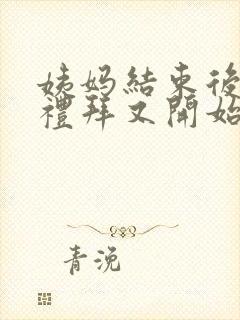 姨妈結束後
禮拜又開始
青浼